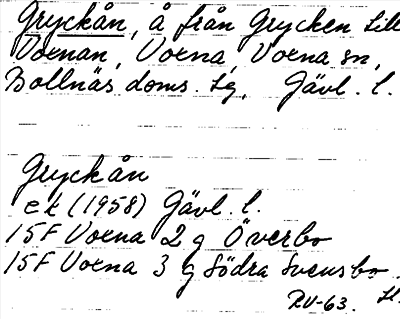 Gryckån, å från Grycken till
Voxnan, Voxna, Voxna sn,
Bollnäs doms. tg, Jävl. l.
Gryckån
ek (1958) Jävl. l.
15F Voxna 2 g Överbo
15F Voxna 3 g Södra Svensbo
RV-63.